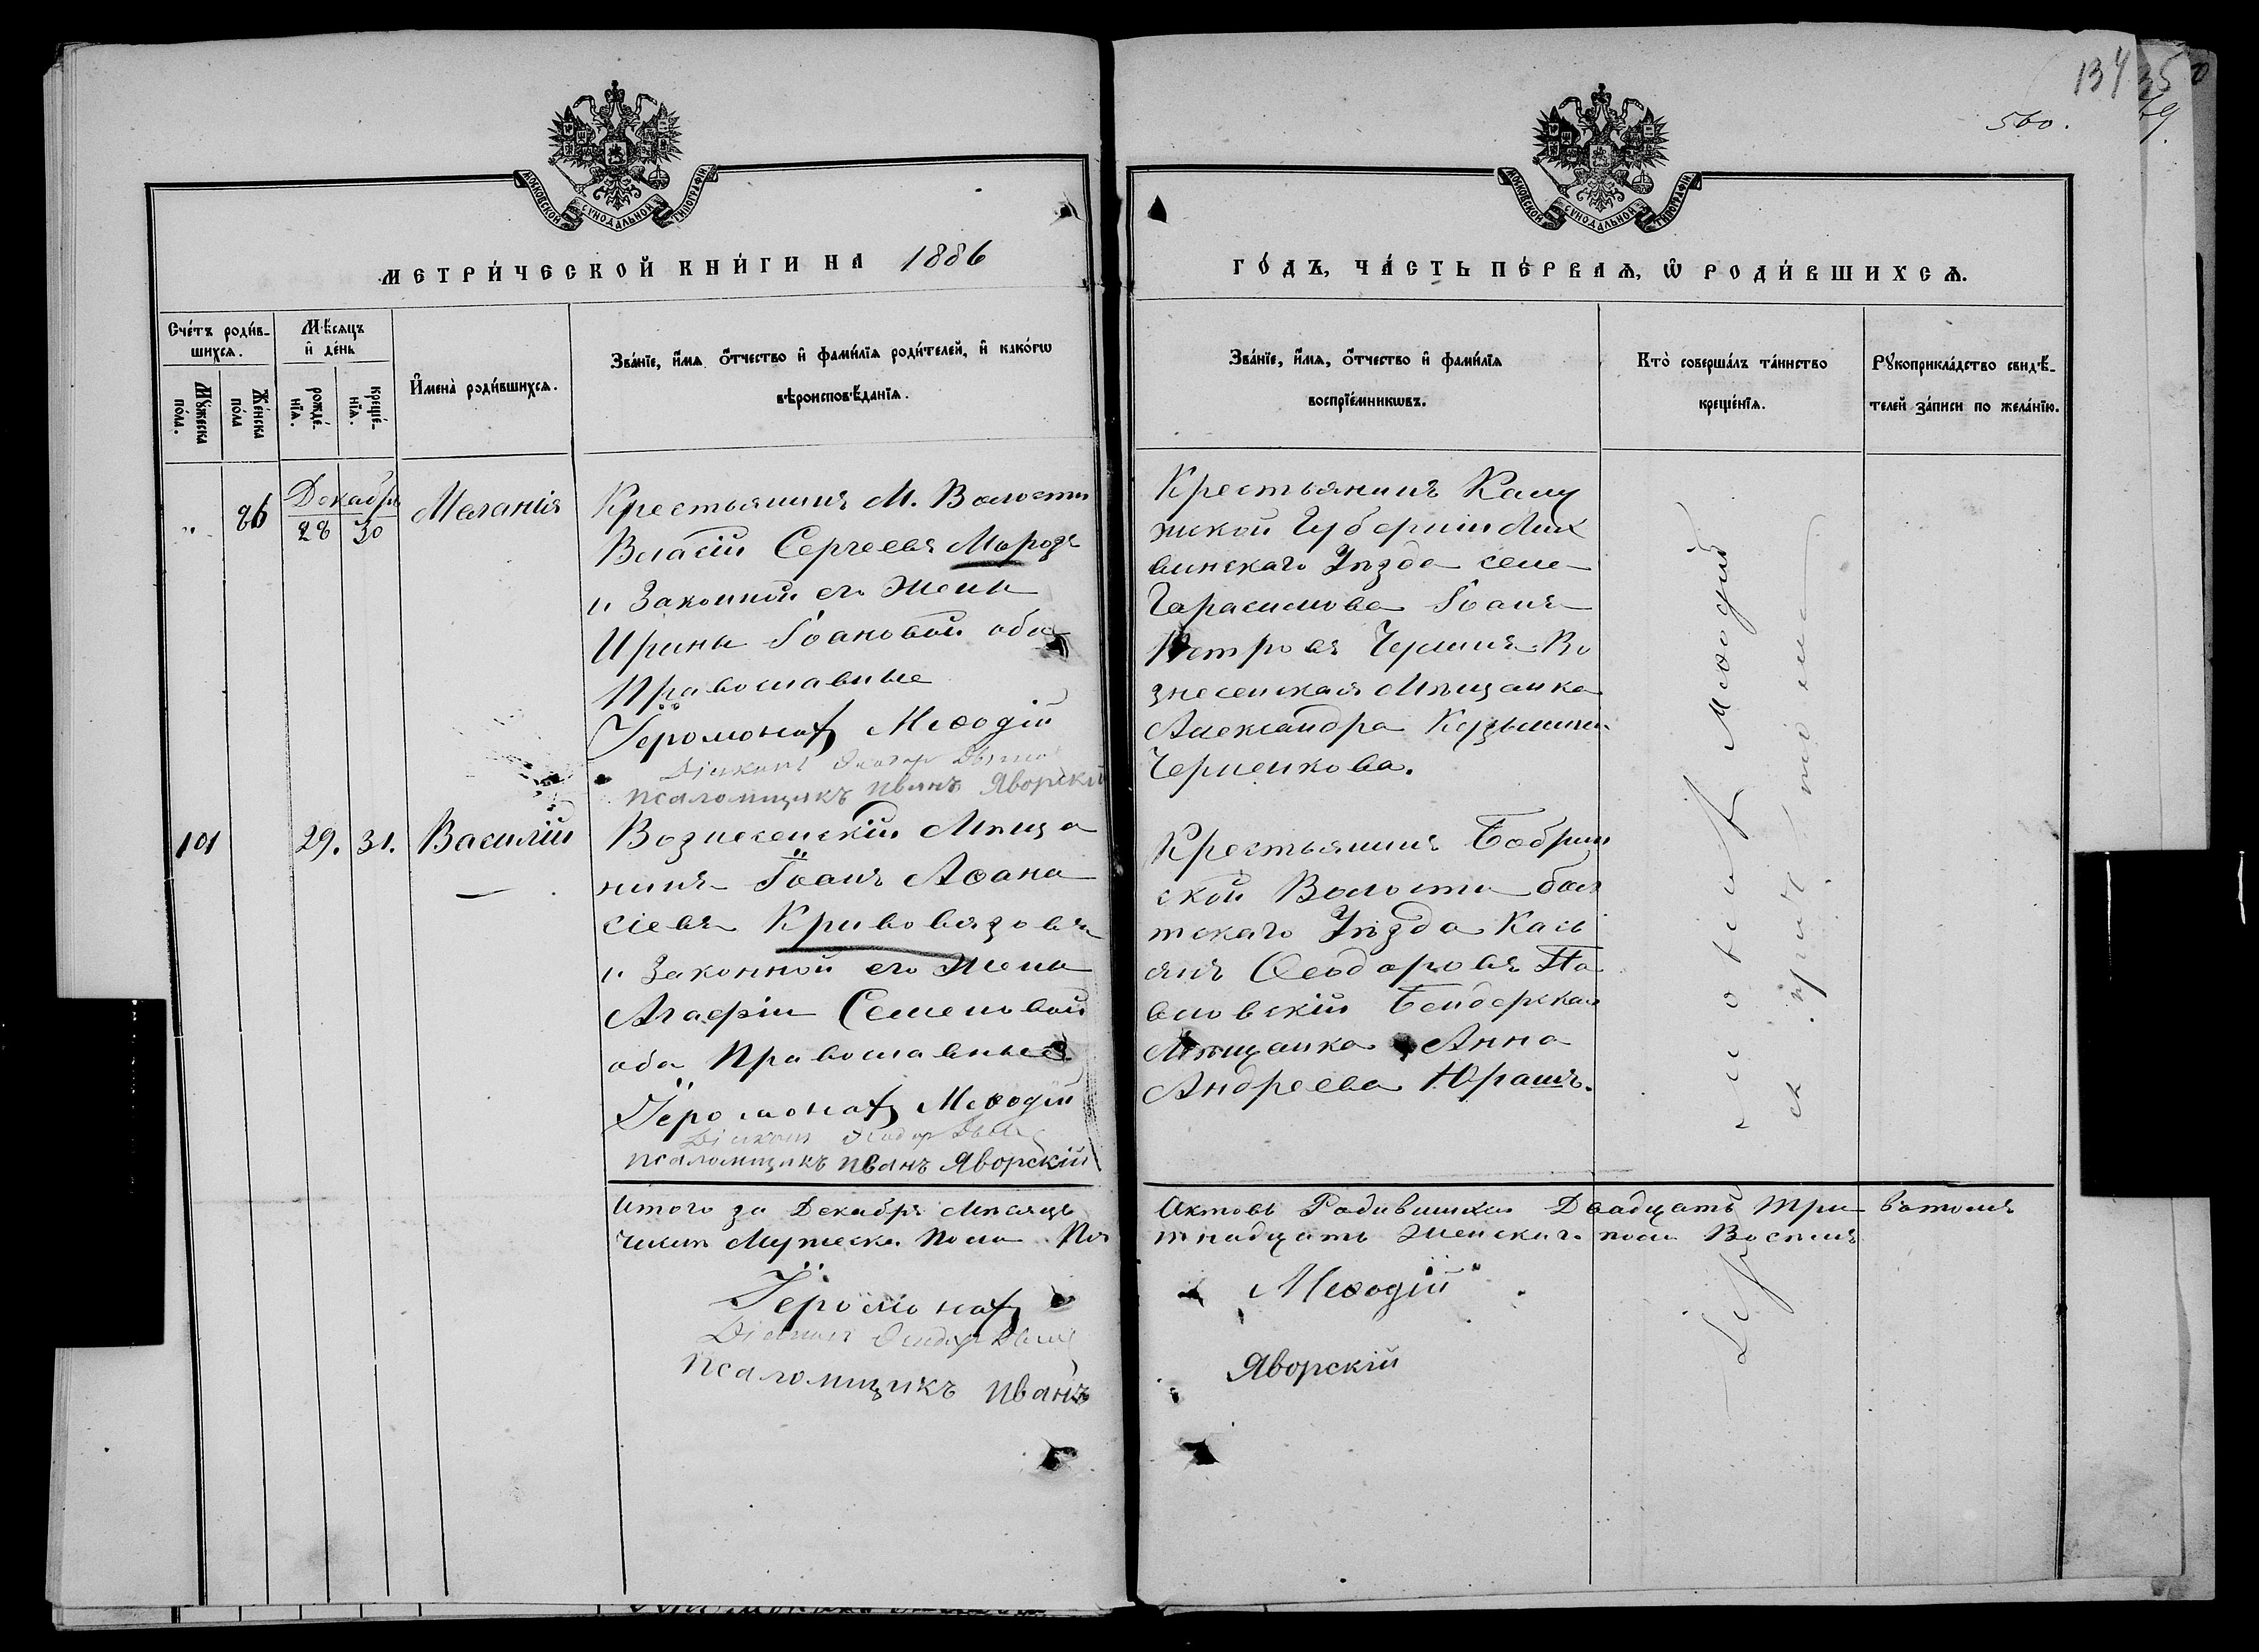 134
560.
МОСКОВСКОЙ СѴНОДАЛЬНОЙ ТИПОГРАФІИ
МЕТРИ́ЧЕСКОЙ КНИ́ГИ НА 1886
Сче́тъ роди́в-
шихся.
Мꙋжеска
по́ла.
Же́нска
по́ла
Мѣ́сяцъ
и҆ де́нь
рожде́-
нїя.
креще́-
нїя.
И҆мена̀ роди́вшихся.
Зва́нїе, и҆́мя ѻ҆́тчество и҆ фами́лїя роди́телей, и҆ како́гѡ
вѣроисповѣ́данїя.
„ 86 Декабрь 28 30 Маланія
Крестьянинъ М. Волости
Власій Сергеевъ Морозъ
и Законной его Жены
Ирины Іоановой оба
Православные
Іеромонахъ Меѳодій
Діаконъ
Псаломщикъ Иванъ Яворскій
101 29. 31. Василій
Вознесенскій Мѣща
нинъ Іоанъ Аѳана
сіевъ Кривовязовъ
и Законной его Жены
Агафіи Семеновой
оба Православные
Іеромонахъ Меѳодій
Діаконъ
Псаломщикъ Иванъ Яворскій
Итого за Декабрь Мѣсяцъ
числѣ Мужеска Пола Пя
Іеромонахъ
Діаконъ
Псаломщикъ Иванъ
МОСКОВСКОЙ СѴНОДАЛЬНОЙ ТИПОГРАФІИ
ГО́ДЪ, ЧА́СТЬ ПЕ́РВАЯ, Ѡ҆ РОДИ́ВШИХСЯ.
Зва́нїе, и҆́мя, ѻ҆́тчество и҆ фами́лїя
воспрїе́мникѡвъ.
Кто̀ соверша́лъ та́инство
креще́нїя.
Рꙋкоприкла́дство свидѣ́-
телей за́писи по жела́нїю.
Крестьянинъ Калу
жской Губерніи Лих
винскаго Уѣзда села
Гарасимова Іоанъ
Петровъ Во
знесенская Мѣщанка
Александра Кузьмина
Черненкова.
Крестьянинъ Бобрин
ской Волости Бал
тскаго Уѣзда Кась
янъ Ѳеодоровъ Па
вловскій Бендерская
Мѣщанка Анна
Андреева Юрашъ.
Меѳодій
съ причтомъ
Актовъ Родившихся Двадцать три въ томъ
тнадцать Женскаго пола Восемь
Меѳодій
Яворскій